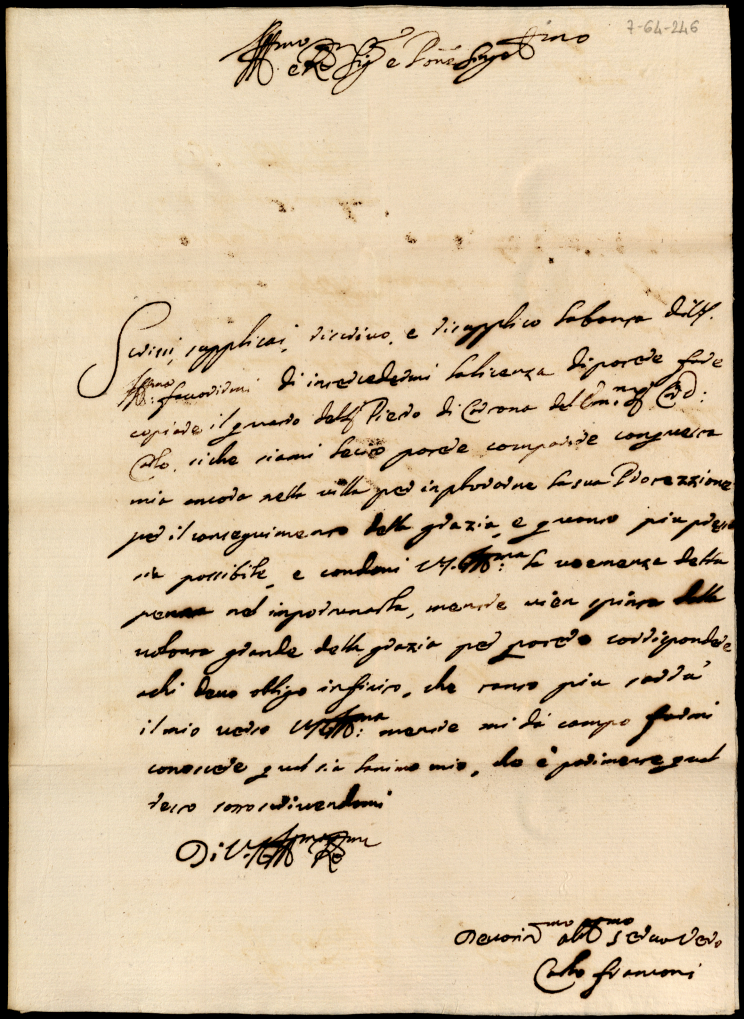 7-64-246
Ill.mo e R.e Sig.r e P.one Sing.mo
Scrissi, supplicai, riscrivo, e risupplico la bontà di V.S.
Ill.ma: favorirmi di intercedermi la licenza di potere fare
copiare il quadro dell Pietro di Cortona dell Em.mo Sig.r Card:
Carlo, siche siami lecito potere comparire con questa
mia ancora nella villa per inplorarne la sua Protezzione
per il conseguimento della grazia, e quanto piu presto
sia possibile, e condoni V.S. Ill.ma: la veemenza della
penna nel inportunarla, mentre vien spinta dalla
volontà grande della grazia per potere corrispondere
a chi devo obligo infinito, che tanto piu sarrà
il mio verso V.S. Ill.ma: mentre mi dà campo farmi
conoscere qual sia l'animo mio, che è parimente qual
resto sottoscrivendomi
Di V.S. Ill.ma e R.e
Devotis.mo obl.mo Servo Vero
Carlo Franconi